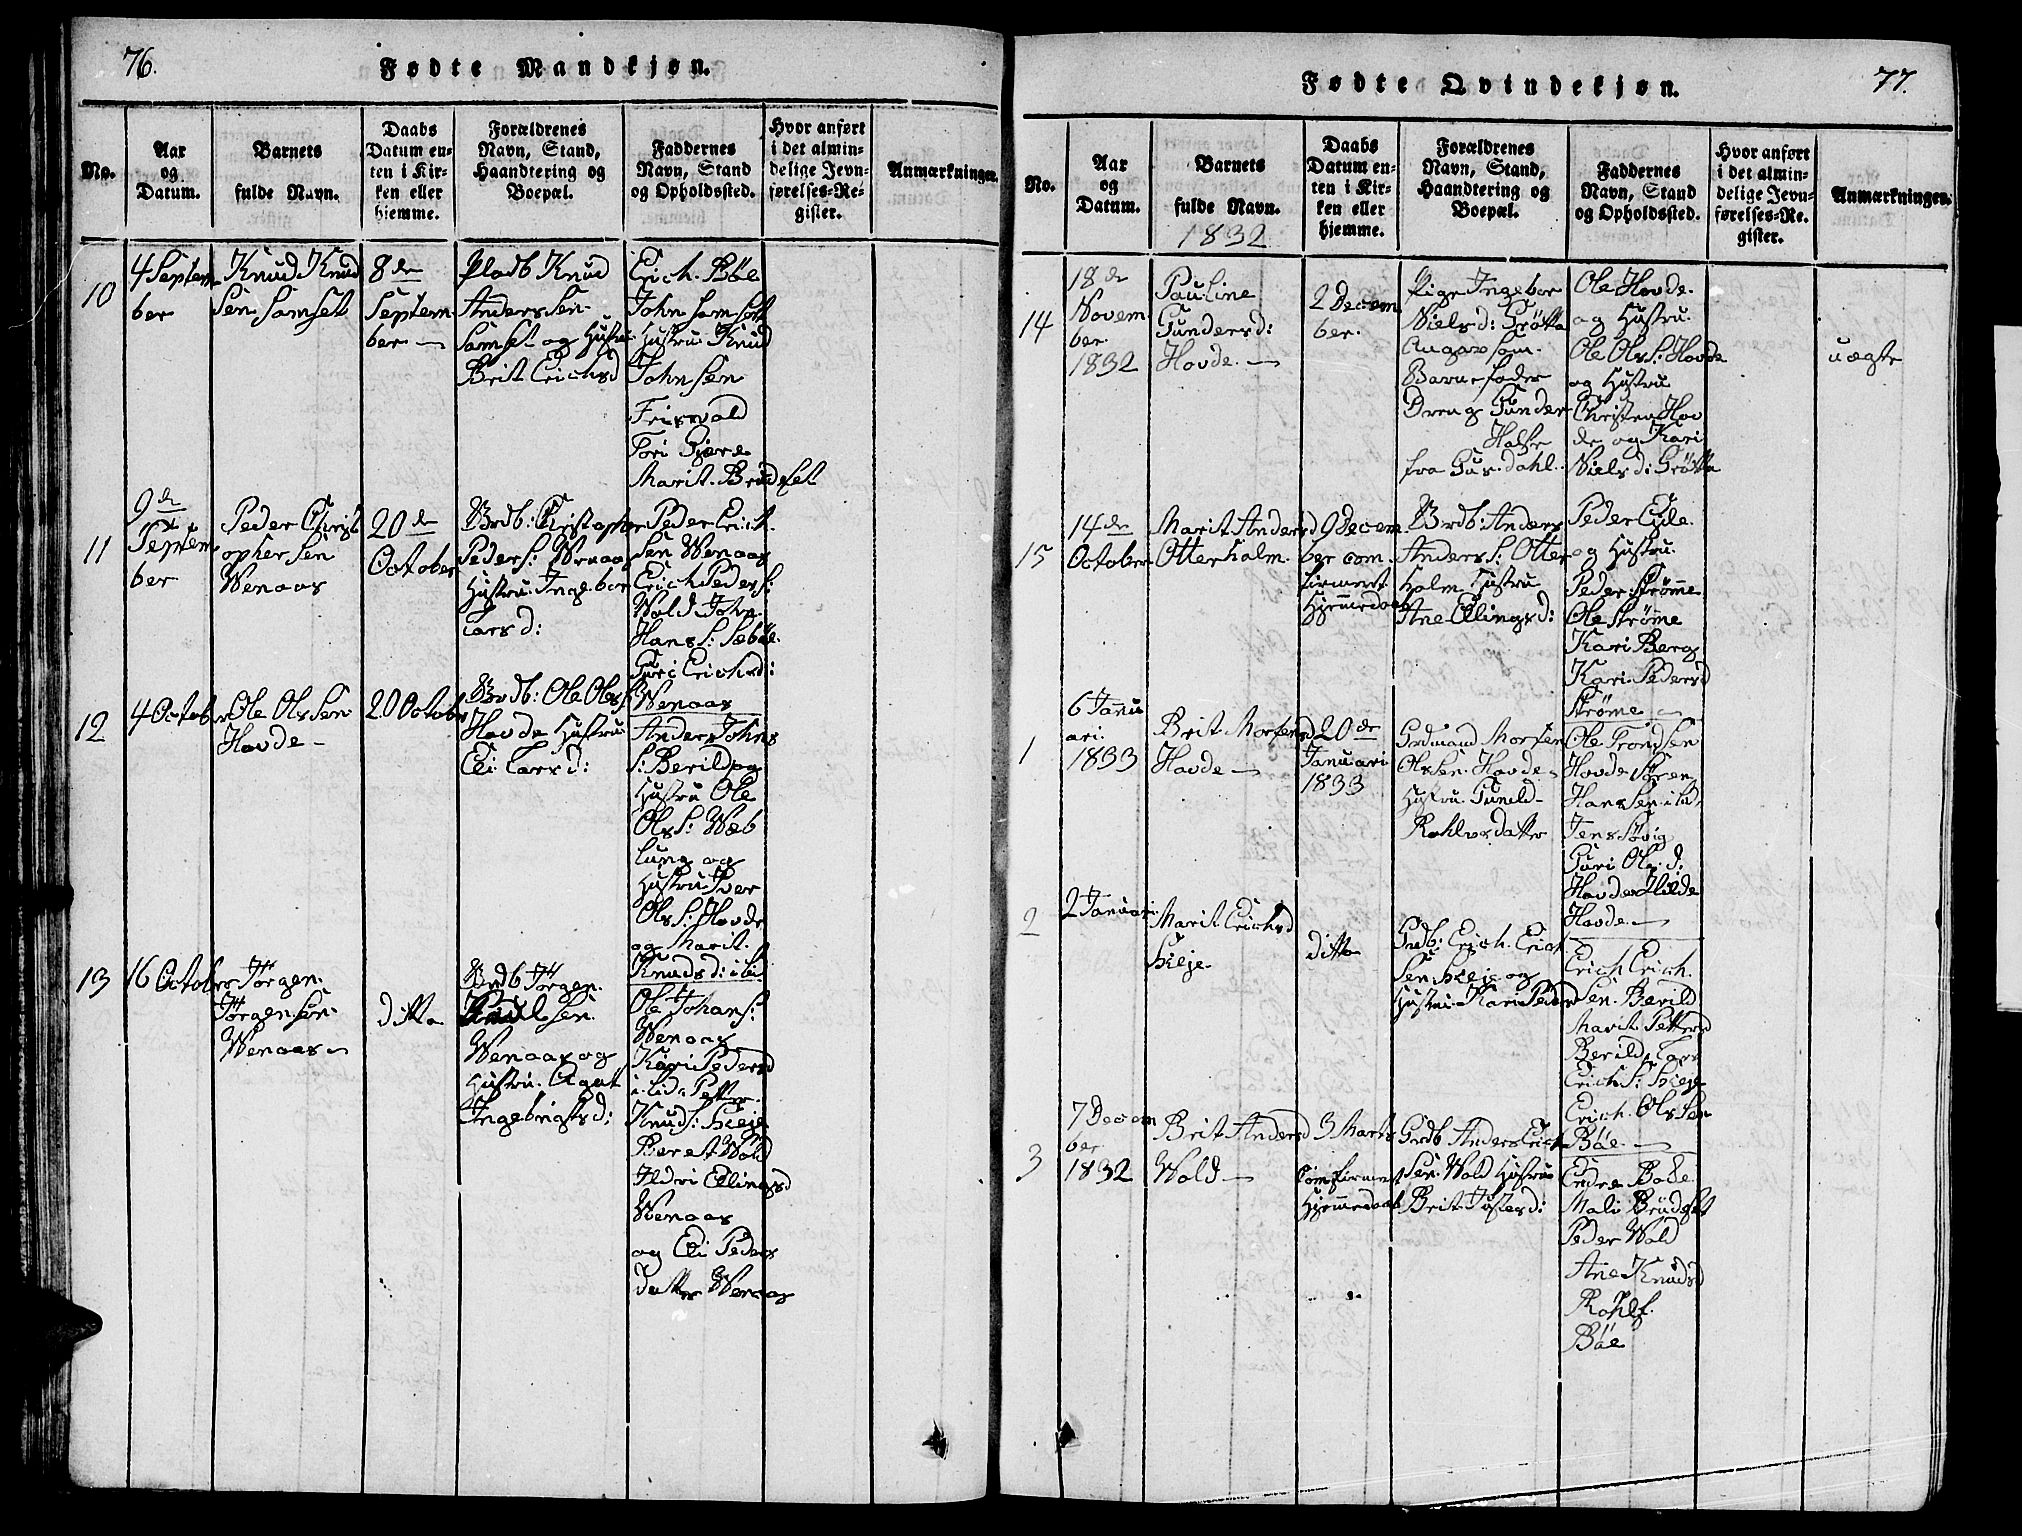 76.
Fødte Mandkjøn.
No.
Aar
og
Datum.
Barnets
fulde Navn.
Daabs
Datum en-
ten i Kir-
ken eller
hjemme.
Forældrenes
Navn, Stand,
Haandtering og
Boepæl.
Faddernes
Navn, Stand
og Opholdssted.
Hvor anført
i det almin-
delige Jevn-
førelses-Re-
gister.
Anmærkninger.
10
4 Septem
ber
Knud Knud
sen Samset
8de
Septem
ber
Pladb Knud
Anderssen
Samset og Hustru
Brit Erichsd
Erich Böe
John Samset
Hustru Knud
Johnsen
Friswold
Tori Gjære
Marit Brudeset
11
9de
Septem
ber
Peder Christ
ophersen
Wenaas
20de
October
Brdb: Christopher
Peders: Wenaas
Hustru Ingebor
Larsd:
Peder Erich
sen Wenaas
Erich Peders:
Wold John
Hans S: Sæböe
Guri Erichsd:
Wenaas
12
4 October
Ole Olssen
Hovde
20 October
Brdb: Ole Olss
Hovde Hustru
Eli Larsd:
Anders Johns
S: Berild og
Hustru Ole
Ols S: Wæb
lung og
Hustru Iver
Ols S: Hovde
og Marit
Knudsd: i Li
13
16 October
Jörgen
Jörgensen
Wenaas
ditto
Brdb Jörgen
Wenaas og
Hustru Agat
Ingebrigtsd:
Ole Johans:
Wenaas
Kari Pedersd
i Lid Petter
Knud S: Hleje
Beret Wold
Ildri Ellingsd
Wenaas
og Eli Peders
datter Wenaas
77.
Fødte Qvindekjøn.
No.
Aar
og
Datum.
Barnets
fulde Navn.
1832
Daabs
Datum en-
ten i Kir-
ken eller
hjemme.
Forældrenes
Navn, Stand,
Haandtering og
Boepæl.
Faddernes
Navn, Stand
og Opholdssted.
Hvor anført
i det almin-
delige Jevn-
førelses-Re-
gister.
Anmærkninger.
14
18de
Novem
ber
1832
Pauline
Gundersd:
Hovde
2 Decem
ber
Pige Ingebor
Nielsd: Grötta
Barnefader
Dreng Gunder
Halse
fra Gusdahl
Ole Hovde
og Hustru
Ole Ols S: Hovde
og Hustru
Christen Hov
de og Kari
Nielsd: Grötta
uægte
15
14de
October
Marit Andersd
Otterholm
9 Decem
ber com
firmert
Hjemmedaab
Brdb: Anders
Anders S: Otter
holm Hustru
Ane Ellingsd:
Peder Eide
og Hustru
Peder Strømme
Ole Strømme
Kari Berg
Kari Pedersd
Strøme
1
6 Janu
ari
1833
Brit Mortensd
Hovde
20de
Januari
1833
Gordmand Morten
Olssen Hovde
Hustru Guneld
Rohlvsdatter
Ole Trondsen
Hovde Sören
Hanssen i Lid
Jens Sövig
Guri Ols d:
Hovde Hilde
Hovde
2
2 Januari
Marit Erichsd
Hleje
ditto
Grdb: Erich Erich
sen Hleje og
Hustru Kari Peders
Erich Erich
sen Berild
Marit Pettersd
Berild Lars
Erich S: Hleje
Erich Olssen
Böe
3
7 Decem
ber
1832
Brit Andersd
Wold
3 Marts
Comfirmert
Hjemmedaab
Grdb Anders Erich
sen Wold Hustru
Brit Jostesd:
Endre Bode
Mali Brudeset
Peder Wold
Ane Knudsd
Rohlf
Böe